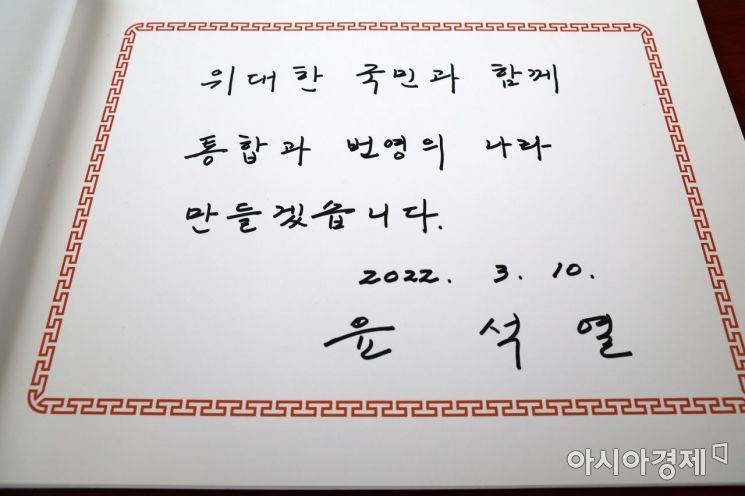 위대한 국민과 함께
통합과 번영의 나라
만들겠습니다.
2022. 3. 10.
윤 석 열
아시아경제